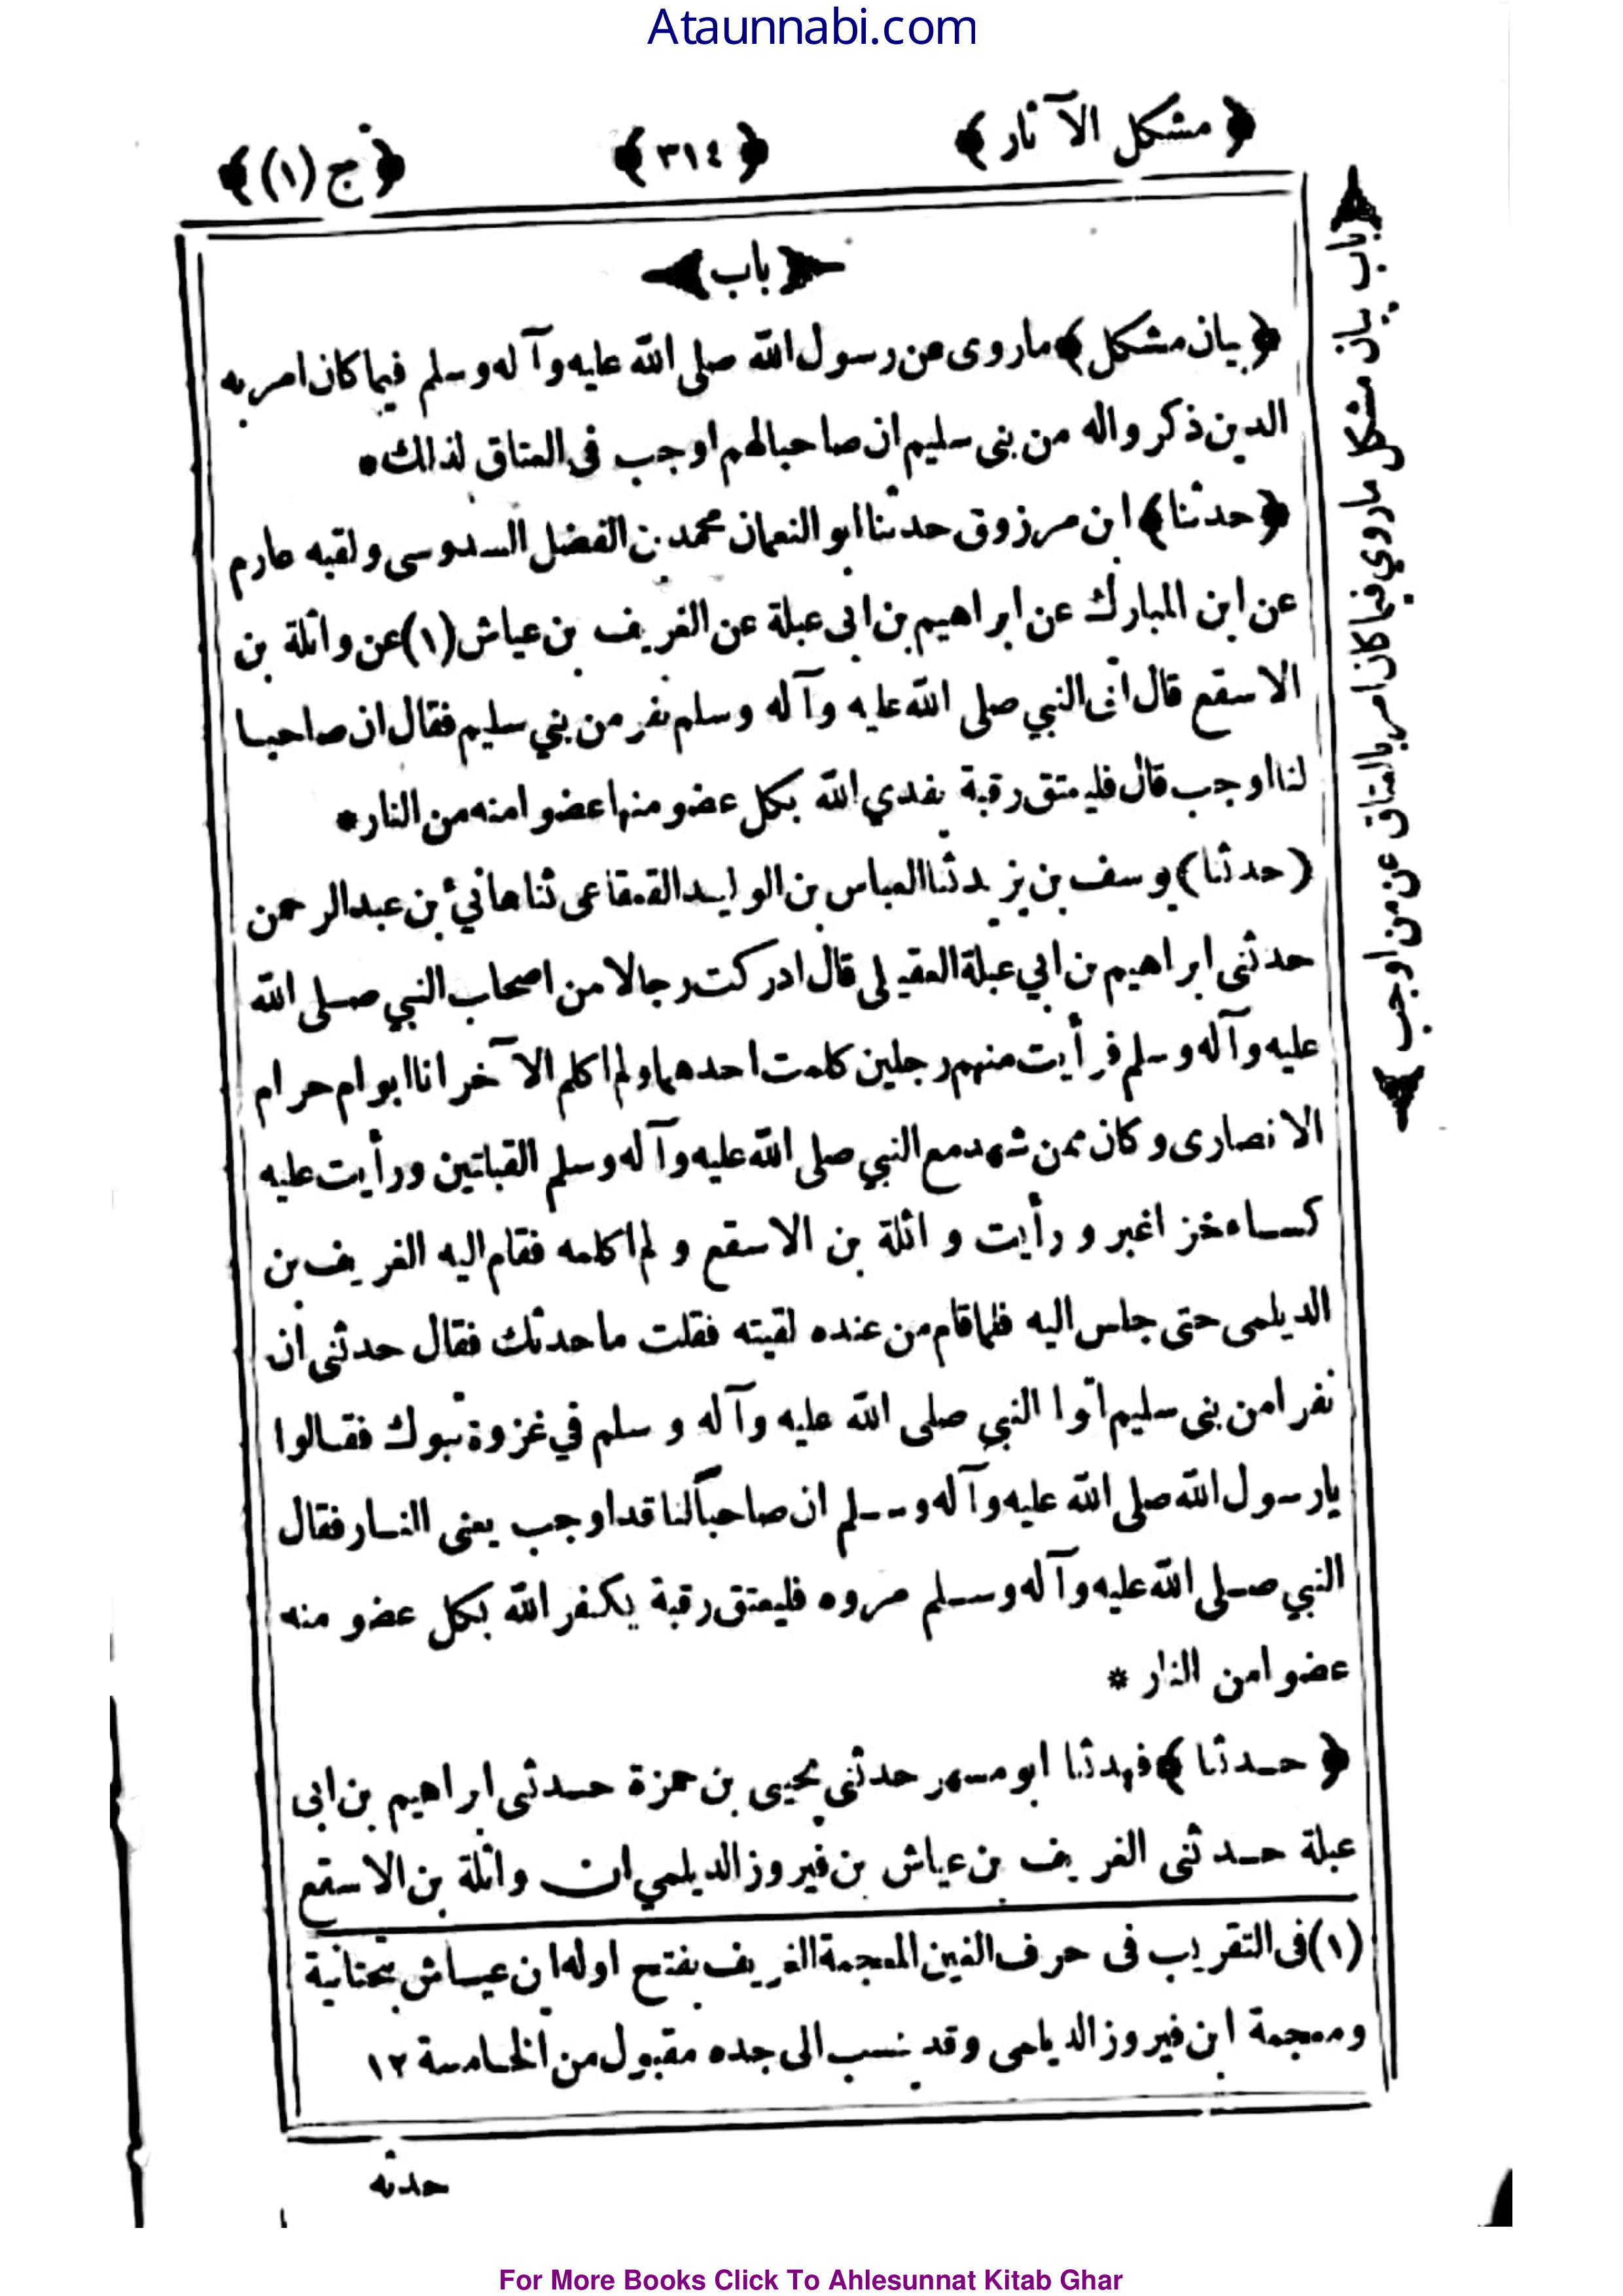 Ataunnabi.com
﴿ مشكل الآثار ﴾ ﴿ ٣١٤ ﴾ ﴿ ج (١) ﴾
﴿ باب ﴾
﴿ بيان مشكل ﴾ ماروى عن رسول الله صلى الله عليه وآله وسلم فيما كان امر به
الدين ذكروا له من بنى سليم ان صاحبا لهم اوجب فى العتاق لذلك •
﴿ حدثنا ﴾ ابن مرزوق حدثنا ابو النعمان محمد بن الفضل السدوسى ولقبه عارم
عن ابن المبارك عن ابراهيم بن ابى عبلة عن الغريف بن عياش (١) عن واثلة بن
الاسقع قال اتى النبي صلى الله عليه وآله وسلم نفر من بني سليم فقال ان صاحبا
لنا اوجب قال فليعتق رقبة يفدي الله بكل عضو منها عضوا منه من النار *
( حدثنا ) يوسف بن يزيد ثنا العباس بن الوليد القعقاعى ثنا هانيء بن عبد الرحمن
حدثنى ابراهيم بن ابي عبلة العقيلى قال ادركت رجالا من اصحاب النبي صلى الله
عليه وآله وسلم فرأيت منهم رجلين كلمت احدهما ولم اكلم الآخر انا ابو ام حرام
الانصارى وكان ممن شهد مع النبي صلى الله عليه وآله وسلم القبلتين ورأيت عليه
كساء خز اغبر ورأيت واثلة بن الاسقع ولم اكلمه فقام اليه الغريف بن
الديلمى حتى جلس اليه فلما قام من عنده لقيته فقلت ما حدثك فقال حدثنى ان
نفرا من بنى سليم اتوا النبي صلى الله عليه وآله وسلم في غزوة تبوك فقالوا
يارسول الله صلى الله عليه وآله وسلم ان صاحباً لنا قد اوجب يعنى النار فقال
النبي صلى الله عليه وآله وسلم مروه فليعتق رقبة يكفر الله بكل عضو منه
عضوا من النار *
﴿ حدثنا ﴾ فهد ثنا ابو مسهر حدثنى يحيى بن حمزة حدثنى ابراهيم بن ابى
عبلة حدثنى الغريف بن عياش بن فيروز الديلمي ان واثلة بن الاسقع
(١) فى التقريب فى حرف الغين المعجمة الغريف بفتح اوله ابن عياش بتحتانية
ومعجمة ابن فيروز الديلمى وقد ينسب الى جده مقبول من الخامسة ١٢
حدثه
باب بيان مشكل ماروي فيما كان امر بالعتاق عن من اوجب
For More Books Click To Ahlesunnat Kitab Ghar